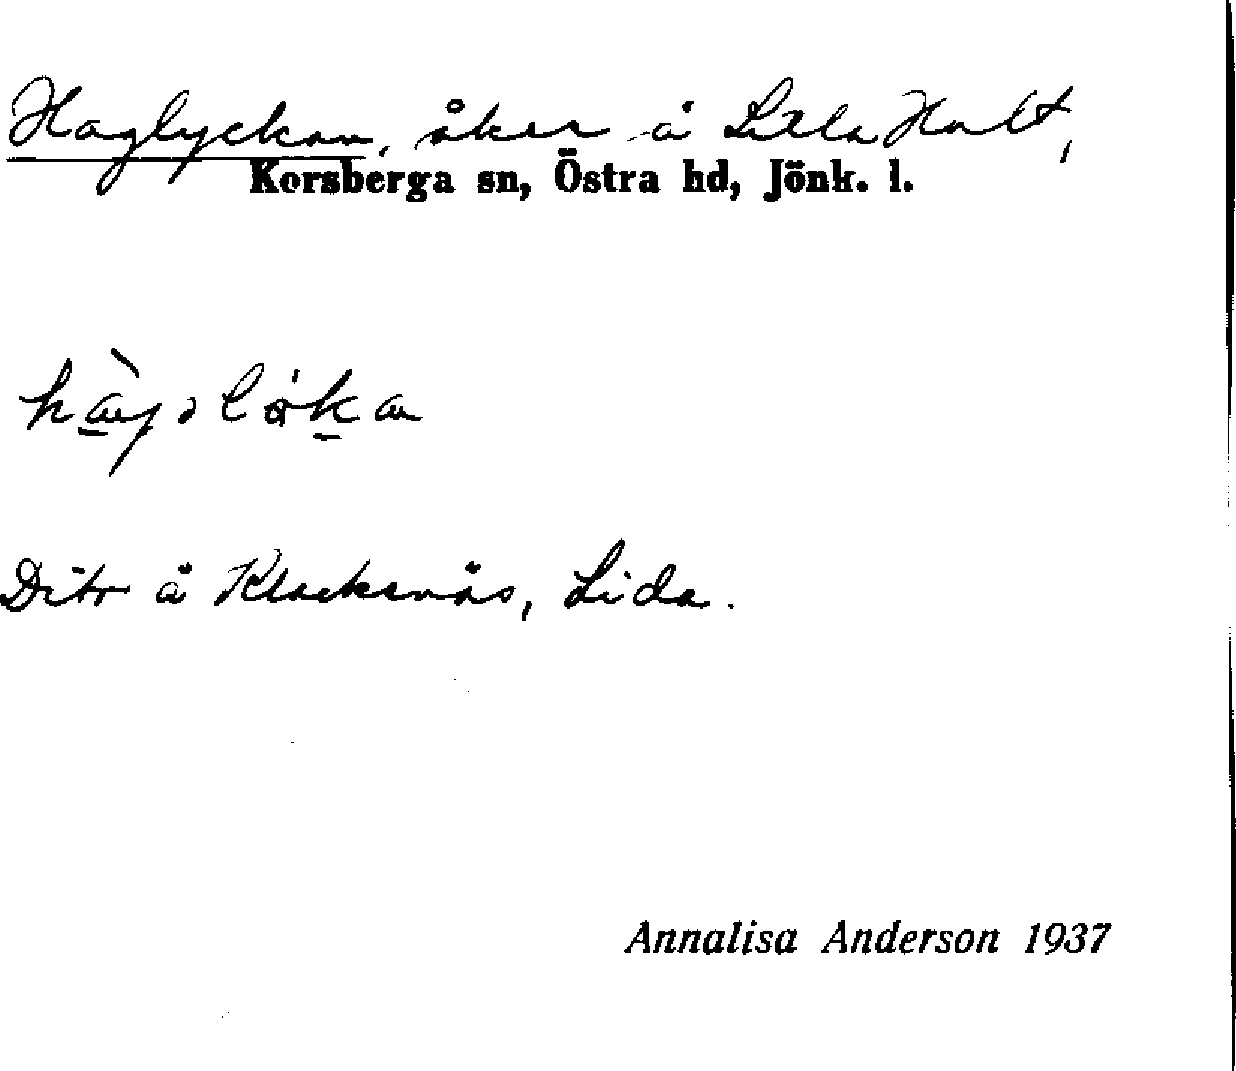 Haglyckan, åker å Lilla Hult,
Korsberga sn, Östra hd, Jönk. l.
Dito å Klocksnäs, Lida.
Annalisa Anderson 1937